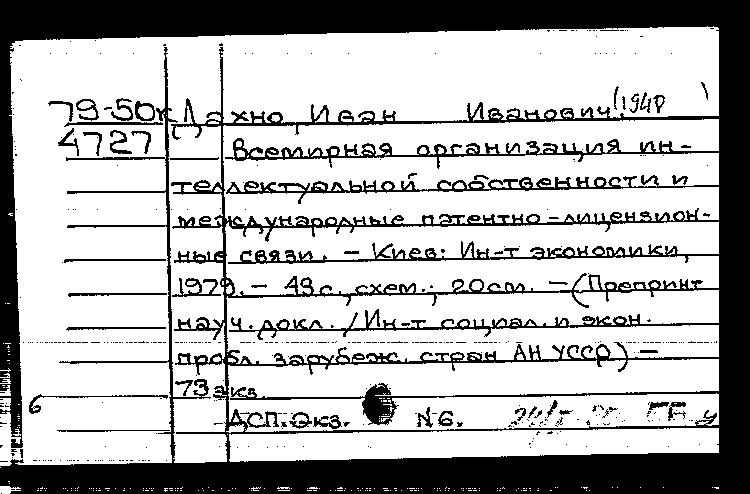 79-50к Дахно, Иван Иванович (1940
4727 Всемирная организация ин-
теллектуальной собственности и
международные патентно-лицензион-
ные связи. - Киев: Ин-т экономики,
1979. - 49 с., схем.; 20 см. - (Препринт
науч. докл. / Ин-т социал. и экон.
пробл. зарубеж. стран АН УССР) -
73 экз.
6 ДСП. Экз. N6.